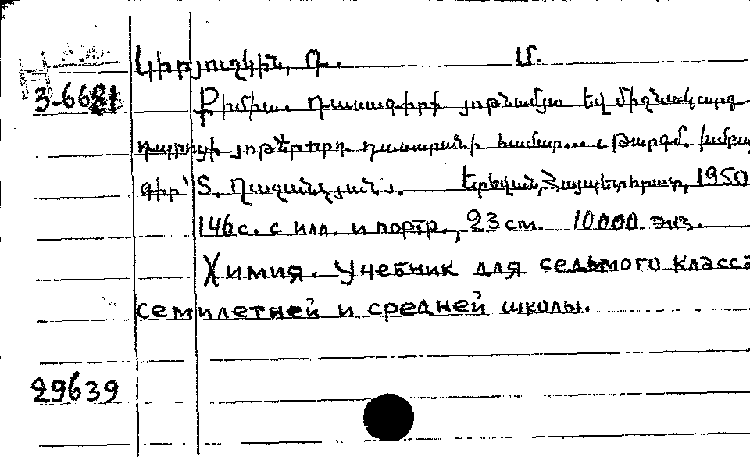 Կիրյուշկին, Դ. Մ.
3-6681 Քիմիա. Դասագիրք յոթնամյա եվ միջնակարգ
դպրոցի յոթերորդ դասարանի համար... Թարգմ. խմբա
գիր՝ Տ. Ղազանչյան. Երեվան, Հայպետհրատ, 1950
146 с. с илл. и портр., 23 см. 10000 экз.
Химия. Учебник для седьмого класса
семилетней и средней школы.
29639